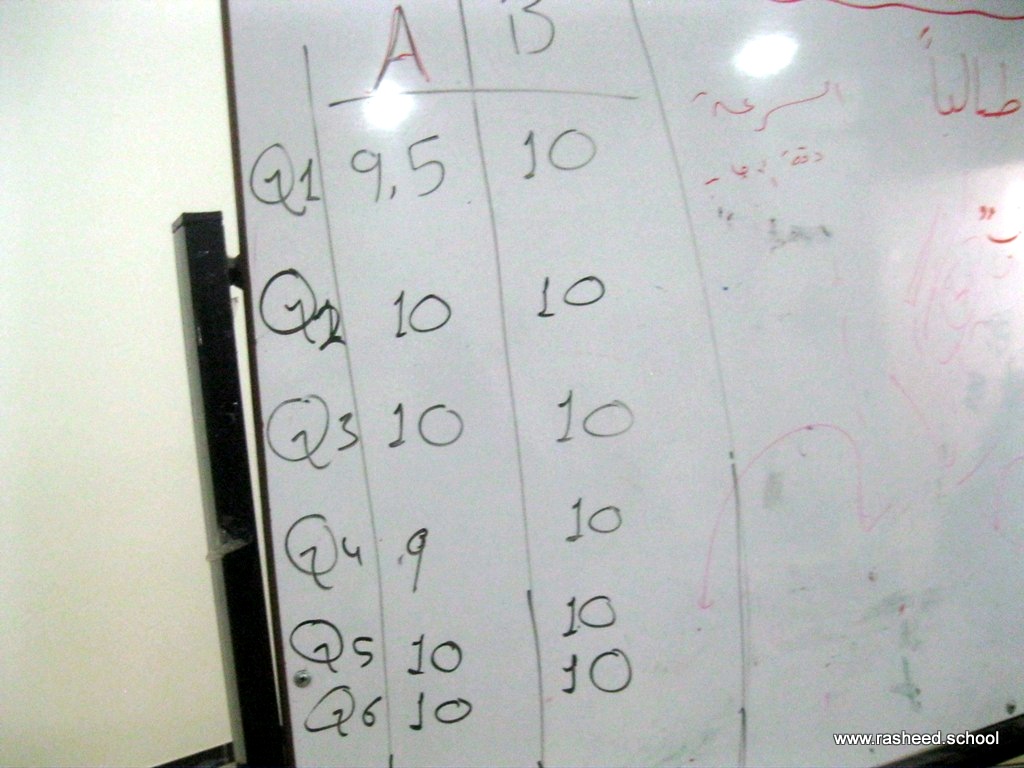 A B
Q1 9,5 10
Q2 10 10
Q3 10 10
Q4 9 10
Q5 10 10
Q6 10 10
السرعة
طالباً
www.rasheed.school